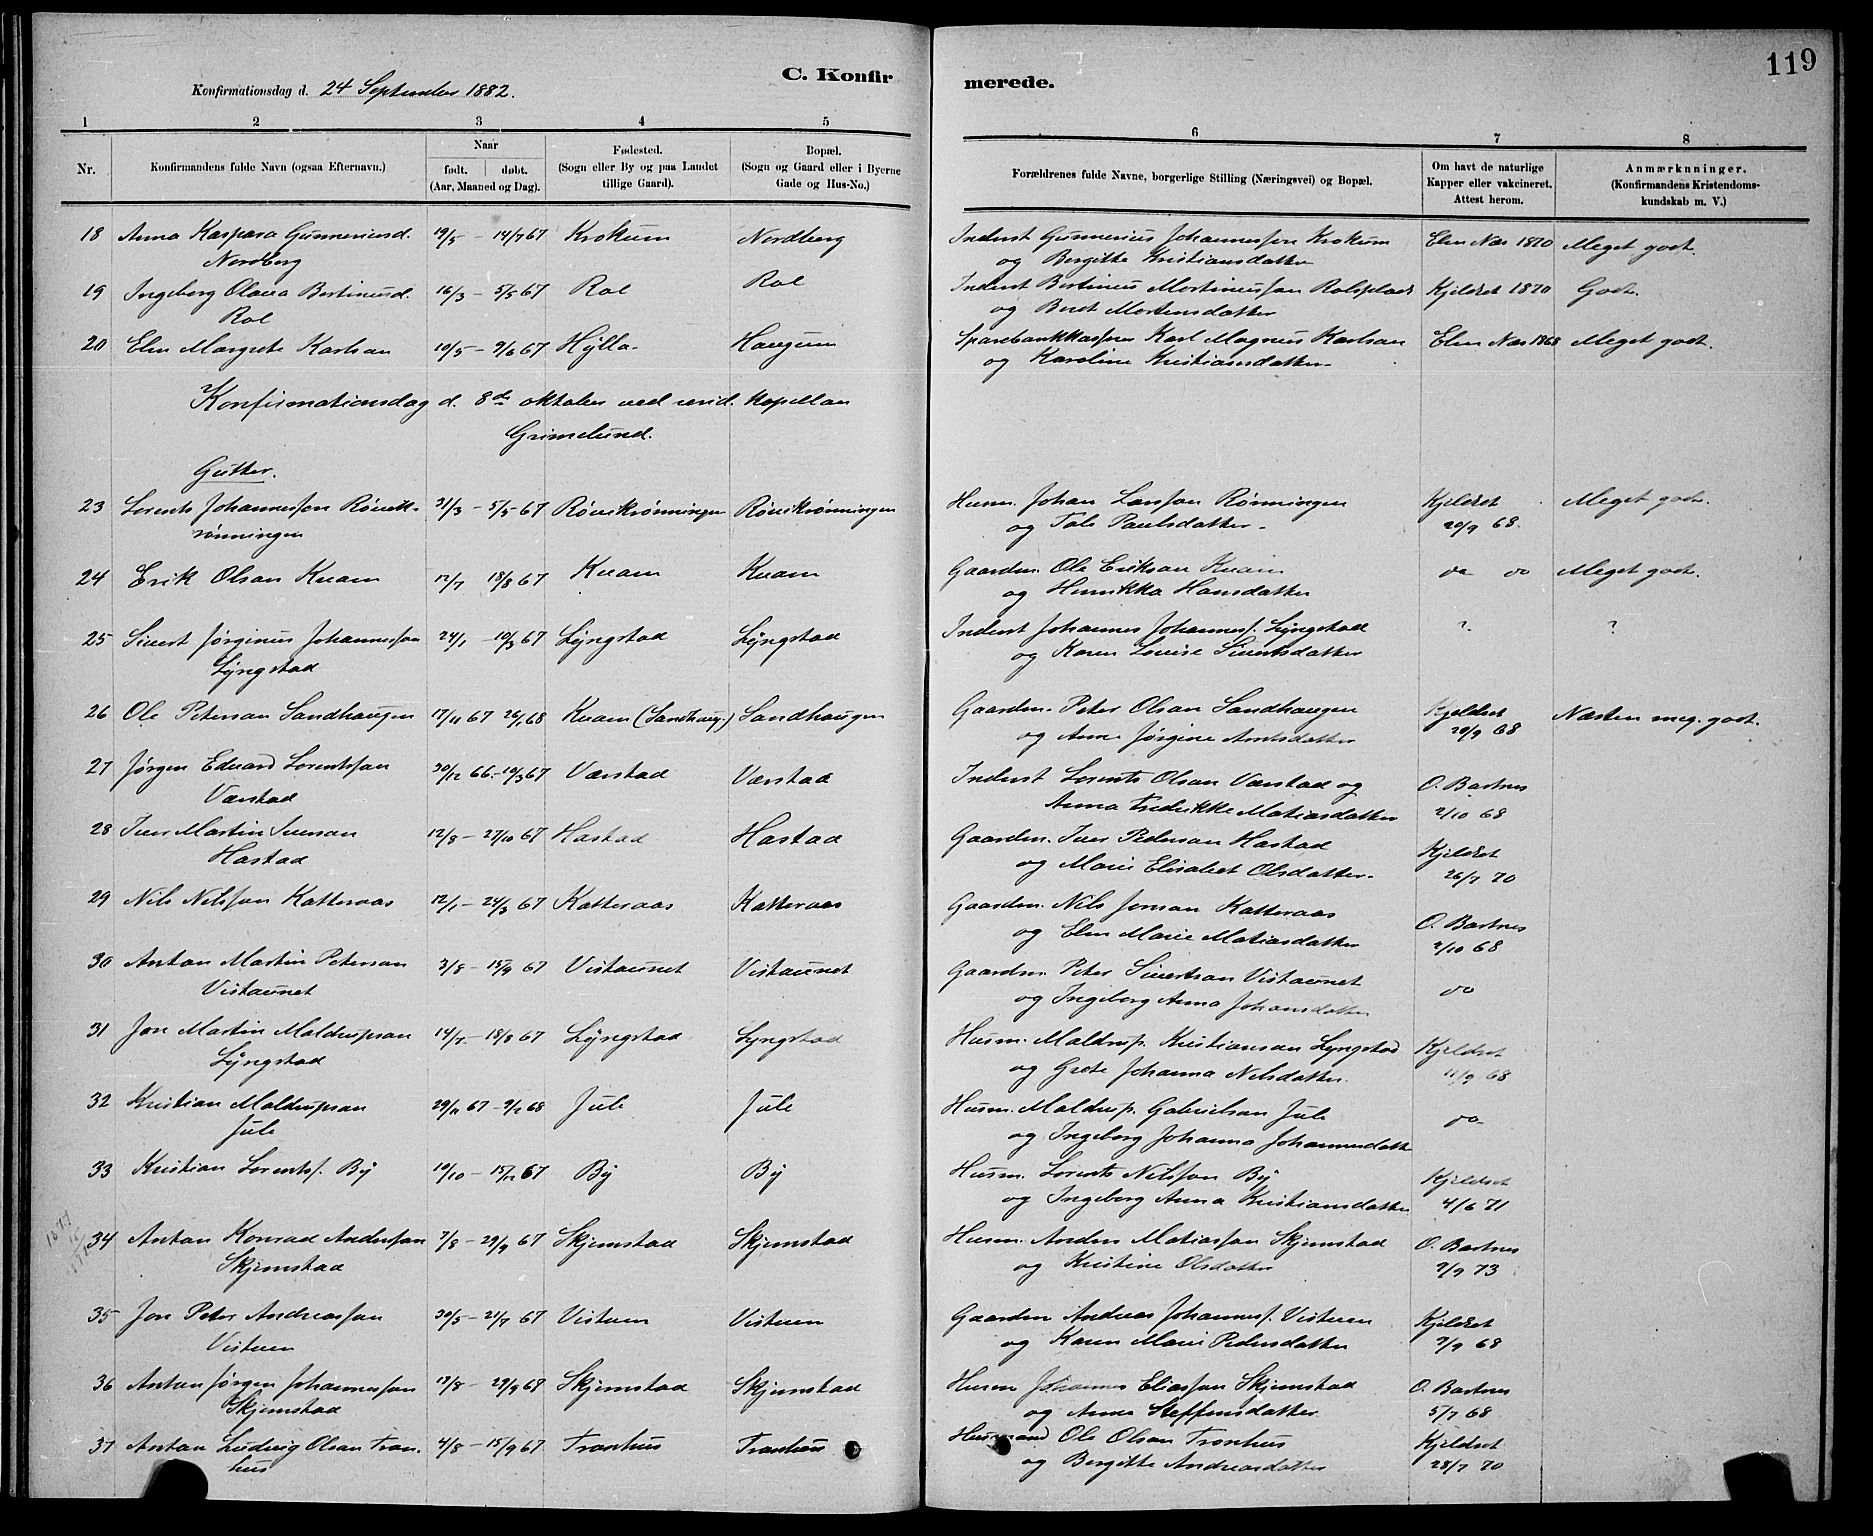 119
C. Konfirmerede.
Konfirmationsdag d. 24 September 1882.
1 2 3 4 5 6 7 8
Nr. Konfirmandens fulde Navn (ogsaa Efternavn.) Naar født. døbt. (Aar, Maaned og Dag). Fødested. (Sogn eller By og paa Landet tillige Gaard). Bopæl. (Sogn og Gaard eller i Byerne Gade og Hus-No.) Forældrenes fulde Navne, borgerlige Stilling (Næringsvei) og Bopæl. Om havt de naturlige Kapper eller vakcineret. Attest herom. Anmærknninger. (Konfirmandens Kristendomskundskab m. V.)
18 Anna Kaspara Gunneriusd. 19/5 – 14/7 67 Krokum Nordberg Inderst Gunnerius Johannessen Krokum Elen Næs 1870 Meget godt.
Nordberg og Bergitte Kristiansdatter
19 Ingeborg Olava Bertinusd. 16/3 – 5/5 67 Rol Rol Inderst Bertinus Mortinussen Rolsplads Kjeldset 1870 Godt.
Rol og Beret Mortensdatter
20 Elen Margrete Karlsen 10/5 – 9/6 67 Hylla Haugum Sparebankkasserer Karl Magnus Karlsen Elen Næs 1868 Meget godt.
og Karoline Kristiansdatter
Konfirmationsdag d. 8de oktober ved resid. kapellan
Grimelund.
Gutter.
23 Lorents Johannessen Røvik- 31/3 – 5/5 67 Røvikrønningen Røvikrønningen Husm. Johan Larssen Rønningen Kjeldset Meget godt.
rønningen og Tale Paulsdatter 20/9 68
24 Erik Olsen Kvam 12/7 18/8 67 Kvam Kvam Gaardm. Ole Eriksen Kvam do do Meget godt.
og Henrikka Hansdatter
25 Sivert Jørginus Johannessen 24/1 – 10/3 67 Lyngstad Lyngstad Inderst Johannes Johanness. Lyngstad ? ?
Lyngstad og Karen Lovise Sivertsdatter
26 Ole Petersen Sandhaugen 17/11 67 26/1 68 Kvam (Sandhaug.) Sandhaugen Gaardm. Peter Olsen Sandhaugen Kjeldset Næsten meg. godt.
og Anne Jørgine Arntsdatter 20/9 68
27 Jørgen Edvard Lorentssen 30/12 66 – 10/3 67 Værstad Værstad Inderst Lorents Olsen Værstad og O. Bartnes
Værstad Anna Fredrikke Matiasdatter 2/10 68
28 Iver Martin Iversen 12/8 – 27/10 67 Hastad Hastad Gaardm. Iver Pedersen Hastad Kjeldset
Hastad og Marie Elisabet Olsdatter 26/7 70
29 Nils Nilssen Katteraas 12/1 – 24/3 67 Katteraas Katteraas Gaardm. Nils Jonsen Katteraas O. Bartnes
og Elen Marie Matiasdatter 2/10 68
30 Anton Martin Petersen 3/8 – 15/9 67 Vistaunet Vistaunet Gaardm. Peter Sivertsen Vistaunet do
Vistaunet og Ingeborg Anna Johansdatter
31 Jon Martin Meldrupsen 14/7 – 18/8 67 Lyngstad Lyngstad Husm. Maldrup. Kristiansen Lyngstad Kjeldset
Lyngstad og Grete Johanna Nilsdatter 11/9 68
32 Kristian Maldrupsen 29/11 67 – 9/2 68 Jule Jule Husm. Maldrup. Gabrielsen Jule do
Jule og Ingeborg Johanna Johannesdatter
33 Kristian Lorentss. By 10/10 – 15/12 67 By By Husm. Lorents Nilssen By Kjeldset
og Ingeborg Anna Kristiansdatter 4/6 71
34 Anton Konrad Anderssen 7/8 – 29/9 67 Skjemstad Skjemstad Husm. Anders Matiassen Skjemstad O. Bartnes
Skjemstad og Kristine Olsdatter 9/9 73
35 Jon Peter Andreassen 30/5 – 21/7 67 Vistven Vistven Gaardm Andreas Johanness. Vistven Kjeldset
Vistven og Karen Marie Pedersdatter 9/9 68
36 Anton Jørgen Johannessen 13/8 – 29/9 68 Skjemstad Skjemstad Husm Johannes Eliassen Skjemstad O. Bartnes
Skjemstad og Anne Steffensdatter 5/7 68
37 Anton Ludvig Olsen Tron- 4/8 – 15/9 67 Tronhus Tronhus Husmand Ole Olsen Tronhus Kjeldset
hus og Bergitte Andreasdatter 28/7 70